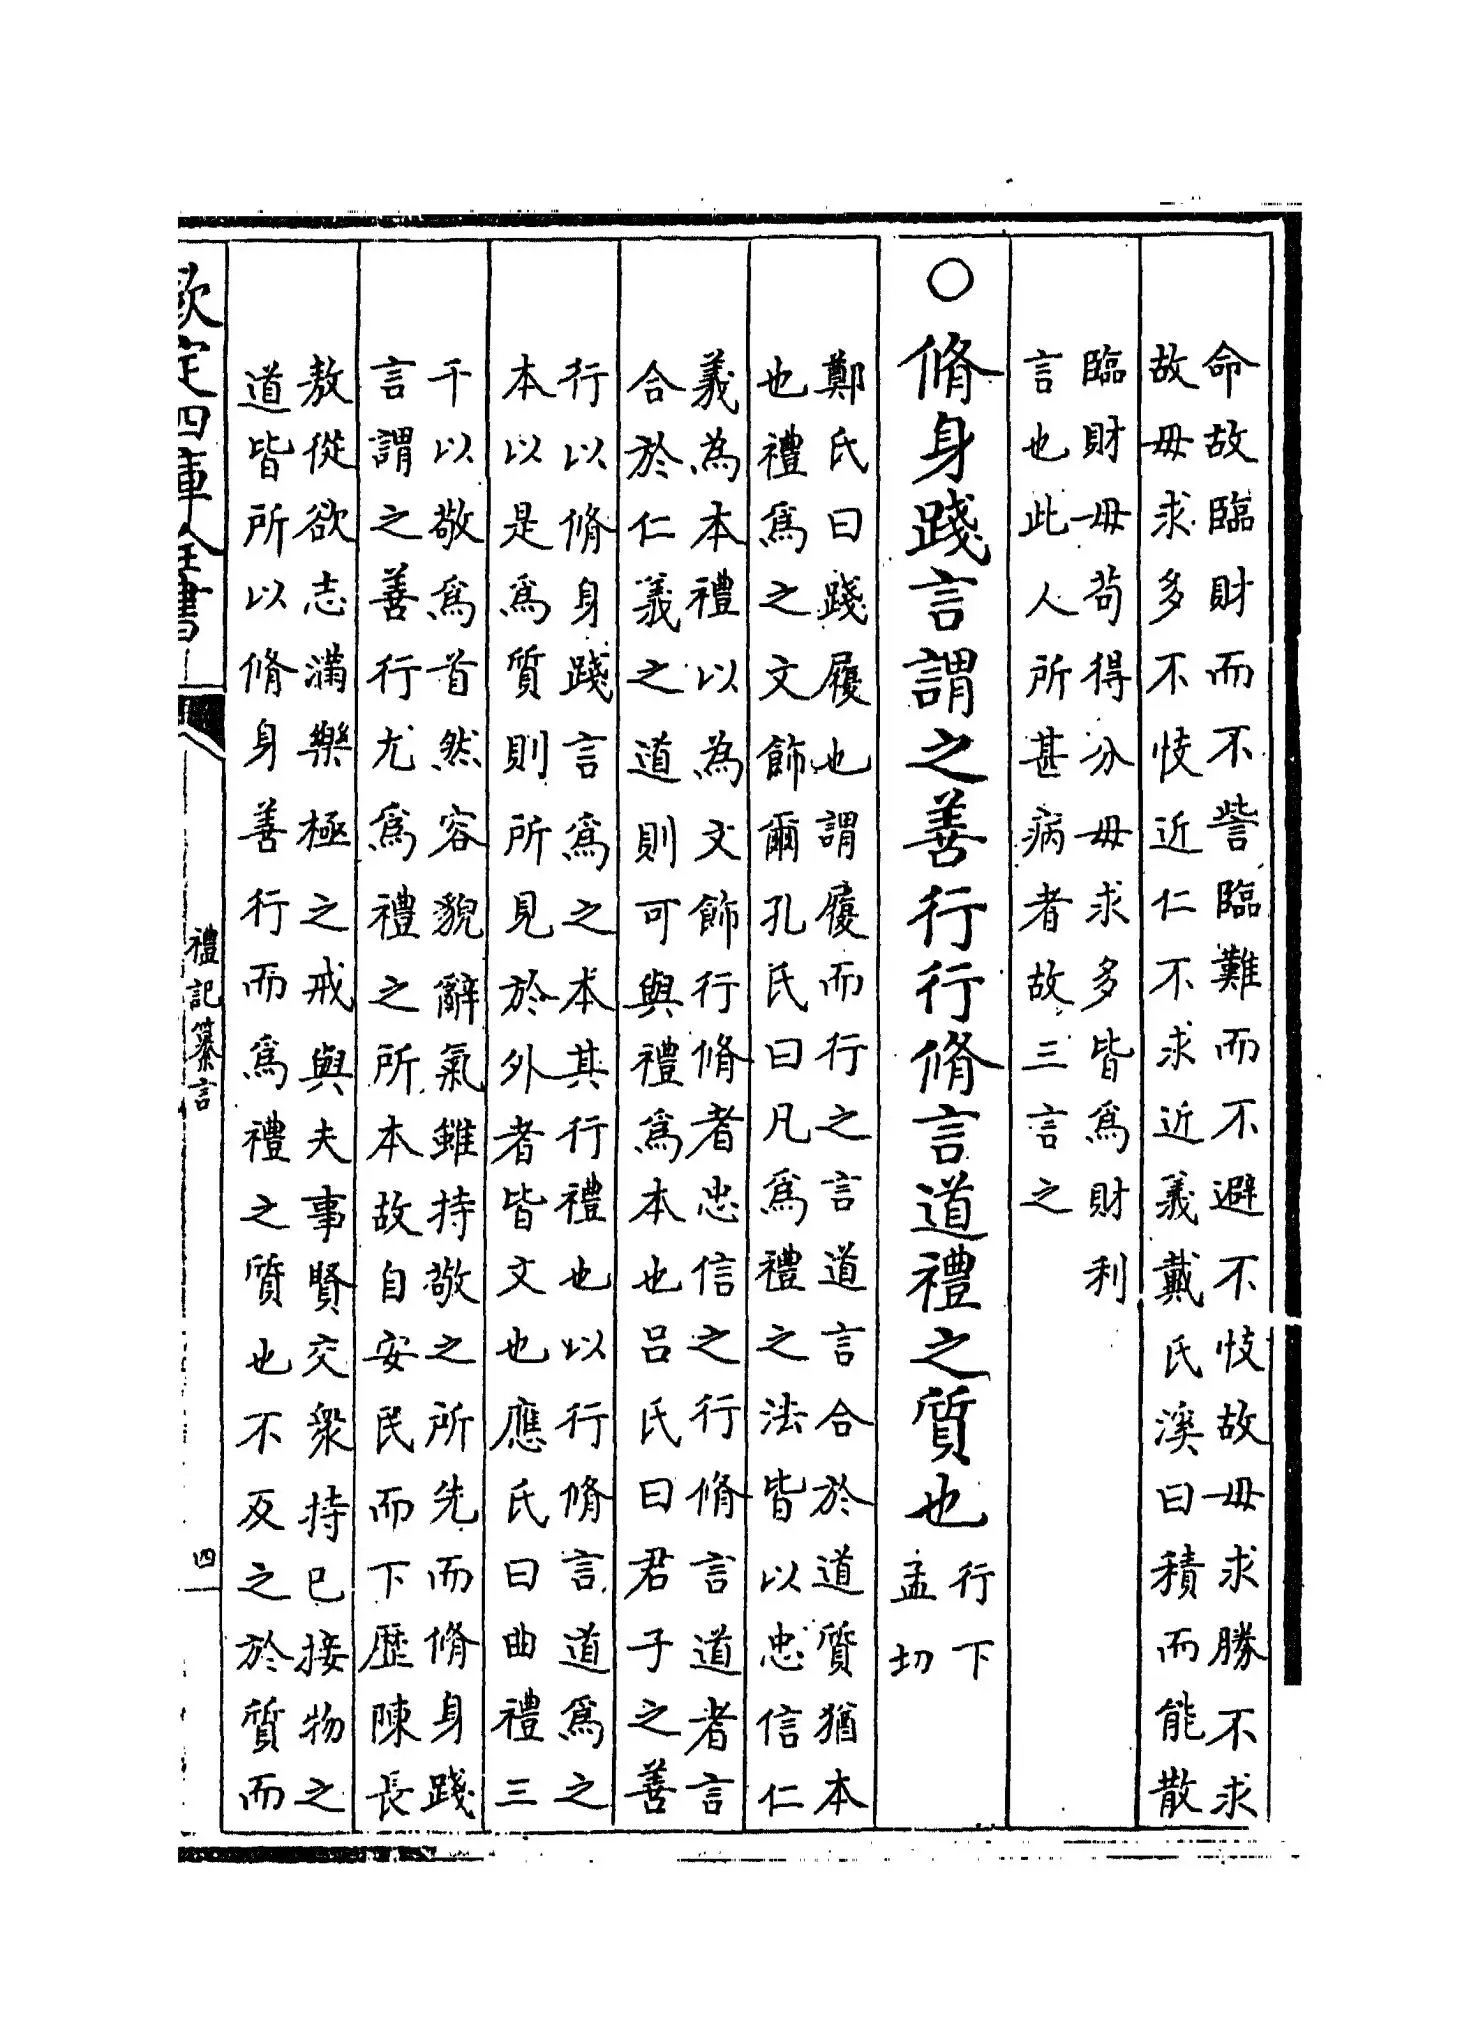 命故臨財而不訾臨難而不避不忮故毋求勝不求
故毋求多不忮近仁不求近義戴氏溪曰積而能散
臨財毋茍得分毋求多皆爲財利
言也此人所甚病者故三言之
○脩身踐言謂之善行行脩言道禮之質也
行下
孟切
鄭氏曰踐履也謂履而行之言道言合於道質猶本
也禮爲之文飾爾孔氏曰凡爲禮之法皆以忠信仁
義為本禮以為文飾行脩者忠信之行脩言道者言
合於仁義之道則可與禮爲本也吕氏曰君子之善
行以脩身踐言爲之本其行禮也以行脩言道爲之
本以是爲質則所見於外者皆文也應氏曰曲禮三
千以敬爲首然容貌辭氣雖持敬之所先而脩身踐
言謂之善行尤爲禮之所本故自安民而下歴陳長
敖從欲志滿樂極之戒與夫事賢交衆持已接物之
道皆所以脩身善行而爲禮之質也不反之於質而
欽定四庫全書
禮記纂言
四